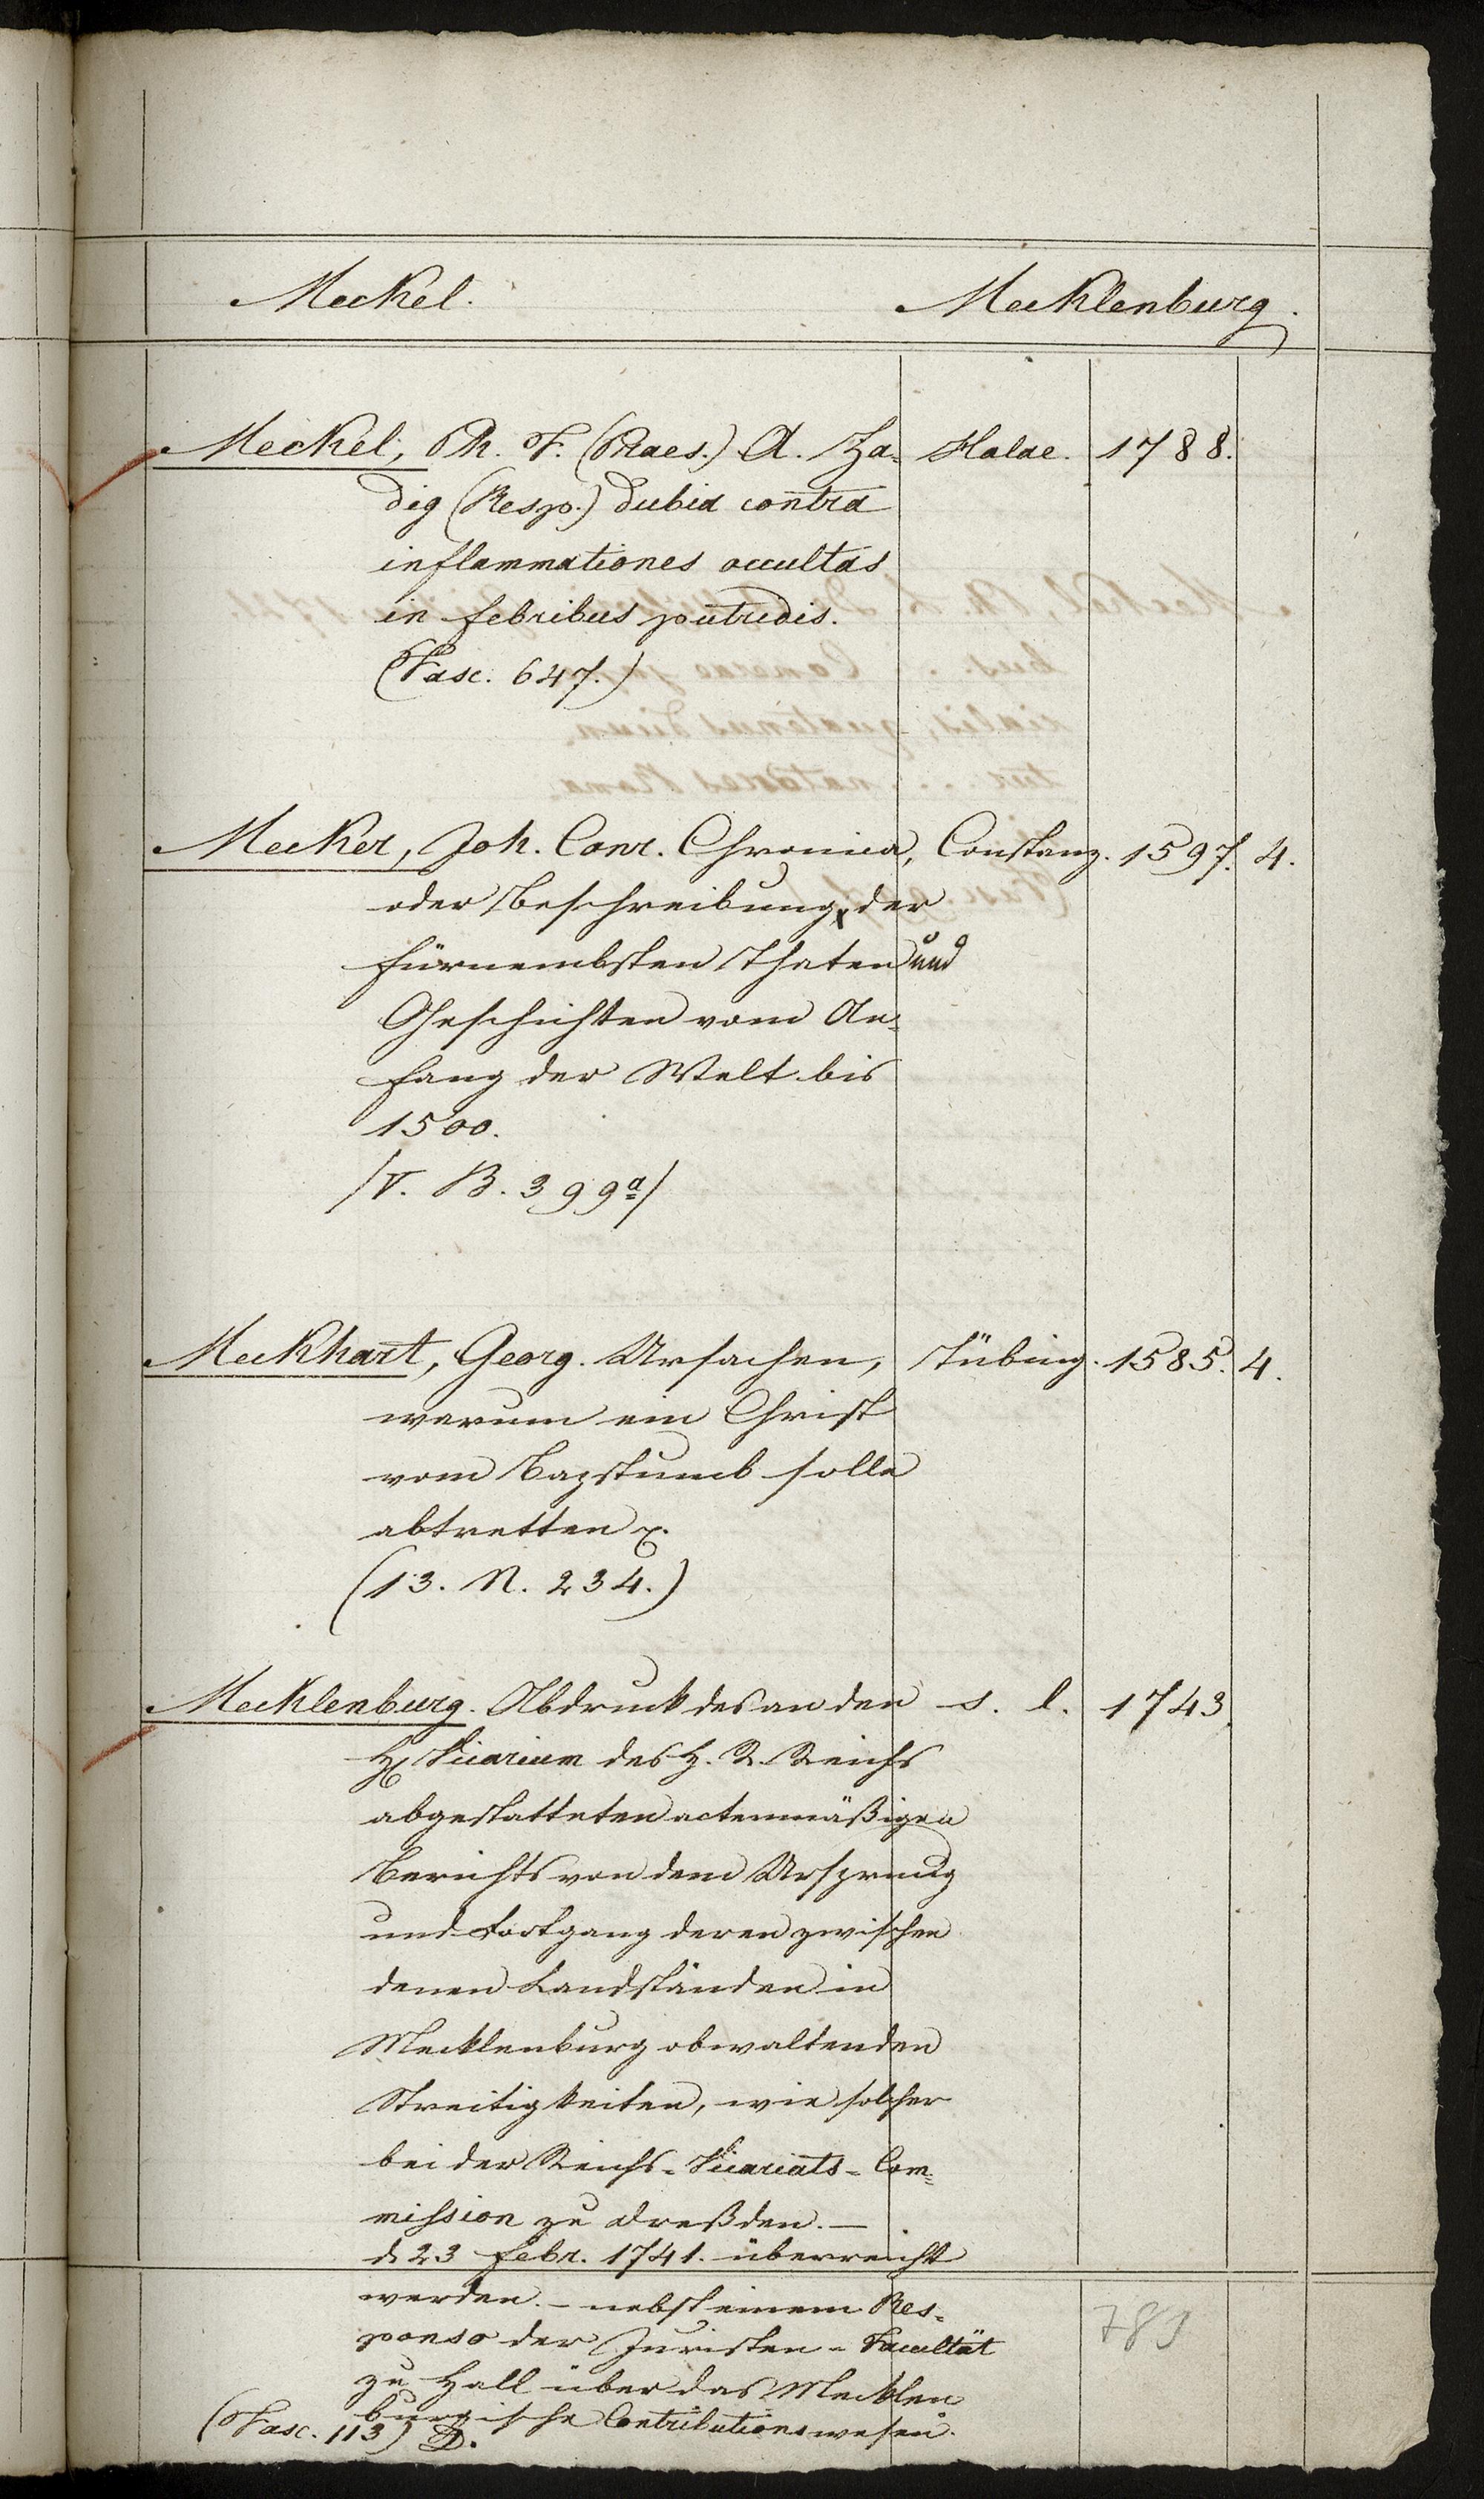 Meckel. Mecklenburg.
Meckel, Ph. F. (Praes.) A. Za- Halae. 1788.
dig (Resp.) dubia contra
inflammationes occultas
in febribus putridis.
(Fasc. 647.)
Mecker, Joh. Conr. Chronica, Constanz. 1597. 4.
oder Beschreibung der
fürnembsten Thaten und
Geschichten vom An-
fang der Welt bis
1500.
/V. B. 399a/
Meckhart, Georg. Ursachen, Tübing. 1585. 4.
warum ein Christ
vom Bapstumb solle
abtretten
(13. N. 234.)
Mecklenburg. Abdruck des an den s. l. 1743.
Vicarium des H. R. Reichs
abgestatteten actenmäßigen
Berichts von dem Ursprung
und Fortgang deren zwischen
denen Landständen in
Mecklenburg obwaltenden
Streitigkeiten, wie solcher
bei der Reichs-Vicariats-Com-
mission zu Dreßden. —
d. 23 Febr. 1741. überreicht
werden. — nebst einem Res-
ponso der Juristen-Facultät
zu Hall über das Mecklen
burgische Contributionswesen.
(Fasc. 113) D.
789